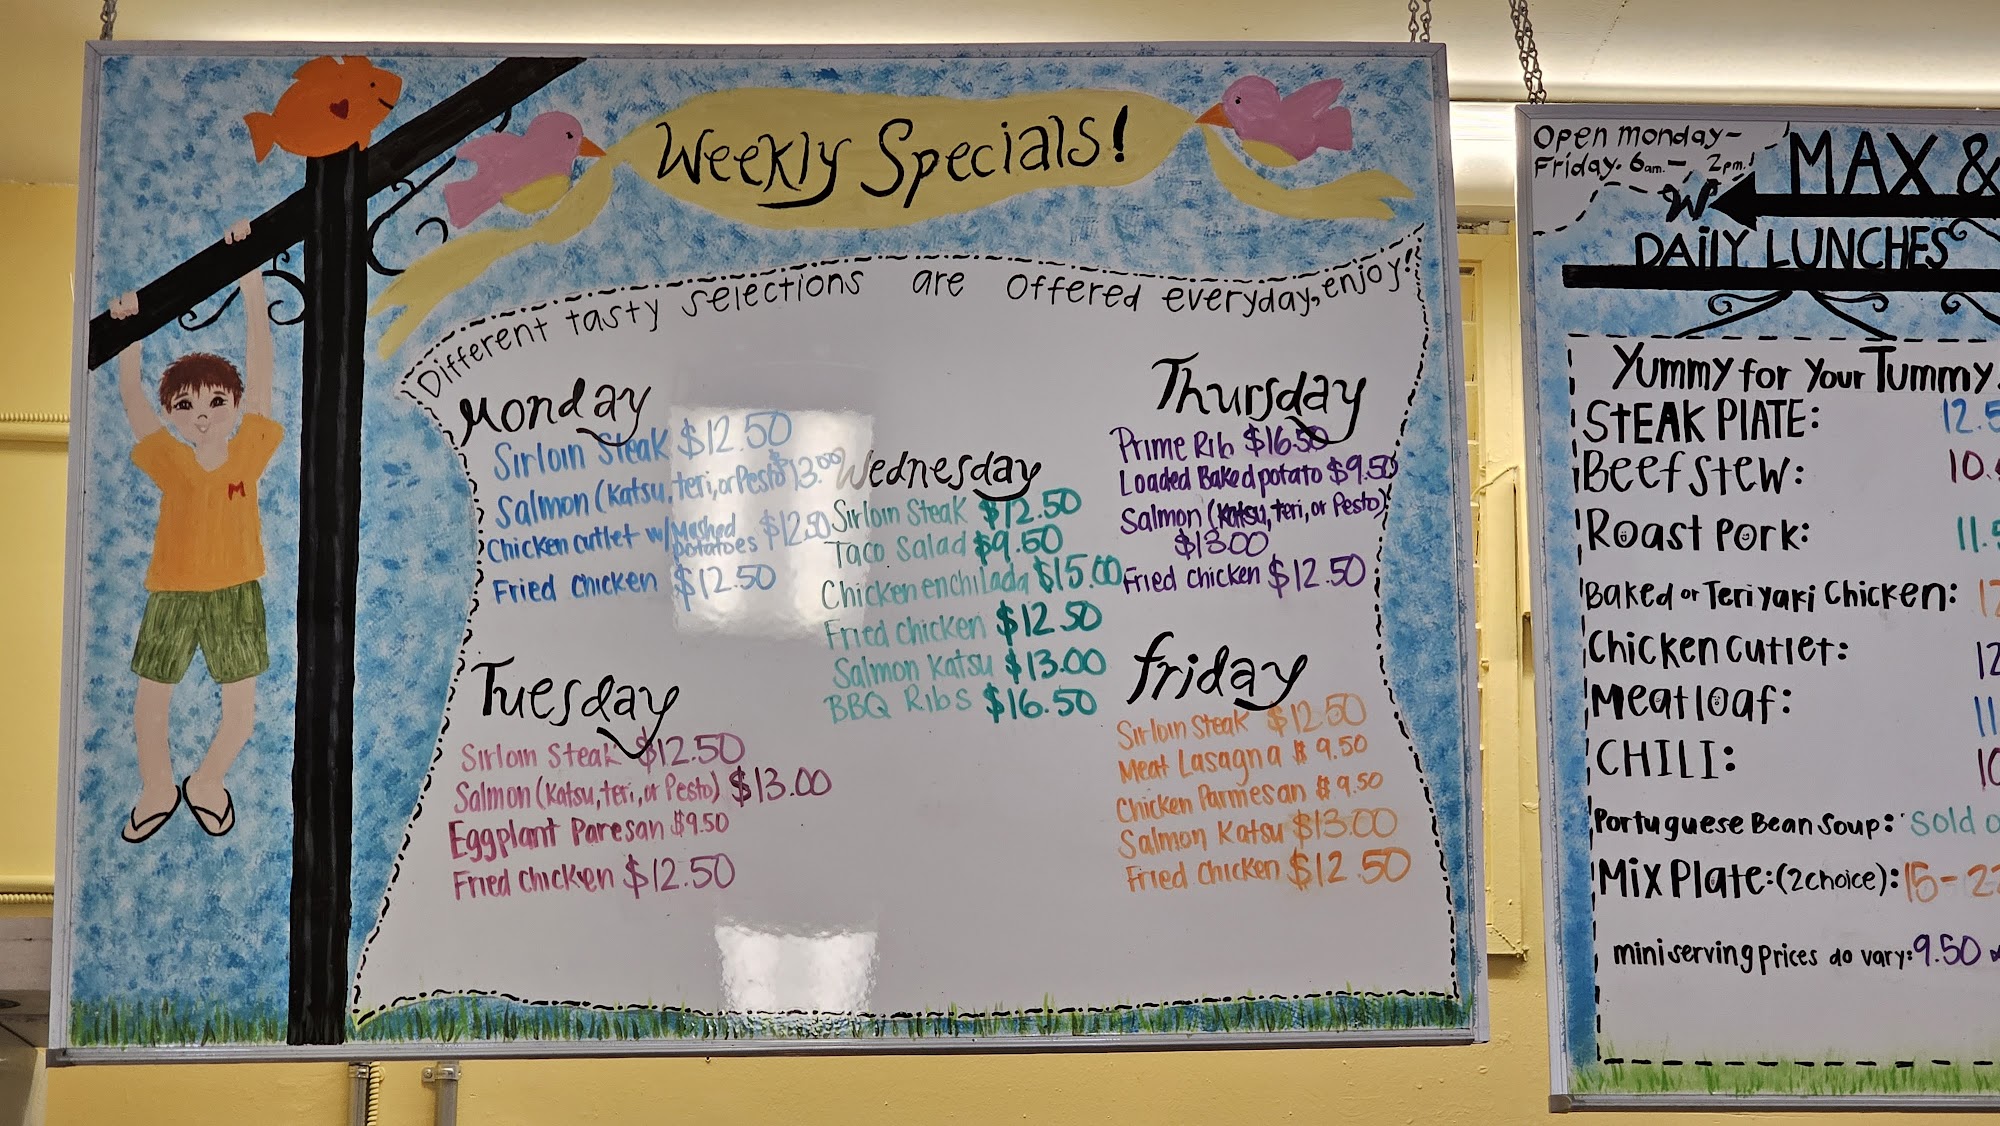 Weekly Specials!
Different tasty selections are offered everyday, enjoy!
Monday
Sirloin Steak $12.50
Salmon (Katsu, teri, or Pesto) $13.00
Chicken cutlet w/ Mashed potatoes $12.50
Fried chicken $12.50
Tuesday
Sirloin Steak $12.50
Salmon (Katsu, teri, or Pesto) $13.00
Eggplant Paresan $9.50
Fried chicken $12.50
Wednesday
Sirloin Steak $12.50
Taco Salad $9.50
Chicken enchilada $15.00
Fried chicken $12.50
Salmon Katsu $13.00
BBQ Ribs $16.50
Thursday
Prime Rib $16.50
Loaded Baked potato $9.50
Salmon (Katsu, teri, or Pesto)
$13.00
Fried chicken $12.50
Friday
Sirloin Steak $12.50
Meat Lasagna $9.50
Chicken Parmesan $9.50
Salmon Katsu $13.00
Fried Chicken $12.50
M
Open Monday-
Friday. 6am. - 2pm.
MAX &
W
DAILY LUNCHES
Yummy for Your Tummy
STEAK PLATE: 12.5
Beef stew: 10.
Roast Pork: 11.5
Baked or Teriyaki Chicken: 12
Chicken cutlet: 12
Meatloaf: 11
CHILI: 10
Portuguese Bean Soup: Sold o
Mix Plate: (2choice): 15-22
mini serving prices do vary: 9.50